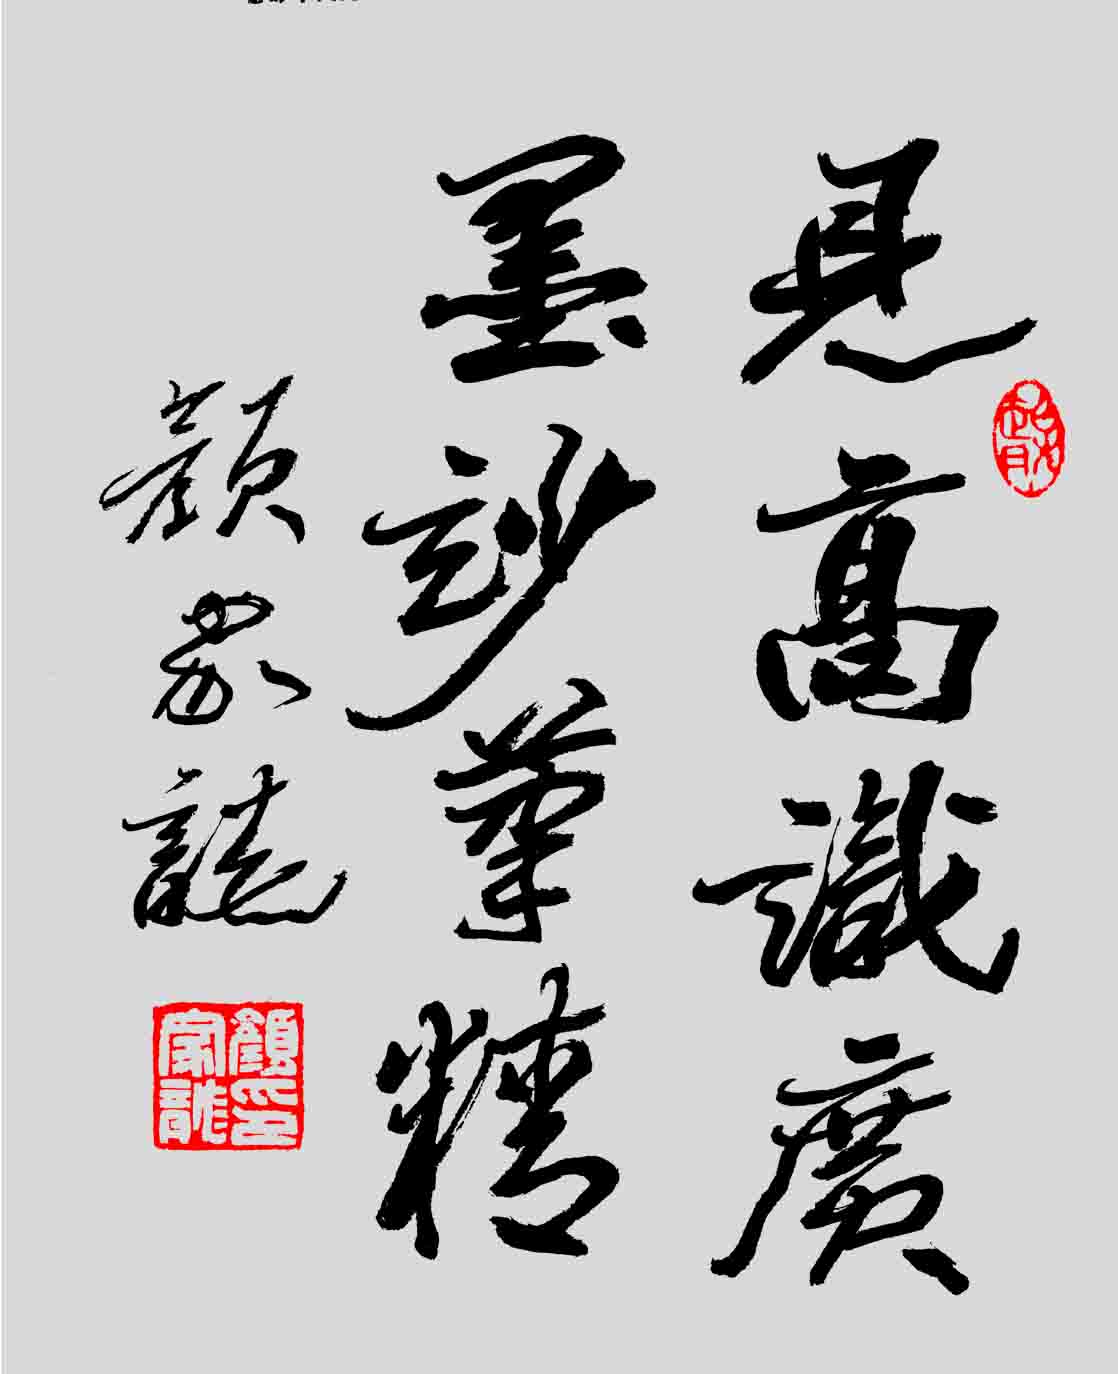 見高識廣
墨妙筆精
顏家龍
顏家龍印